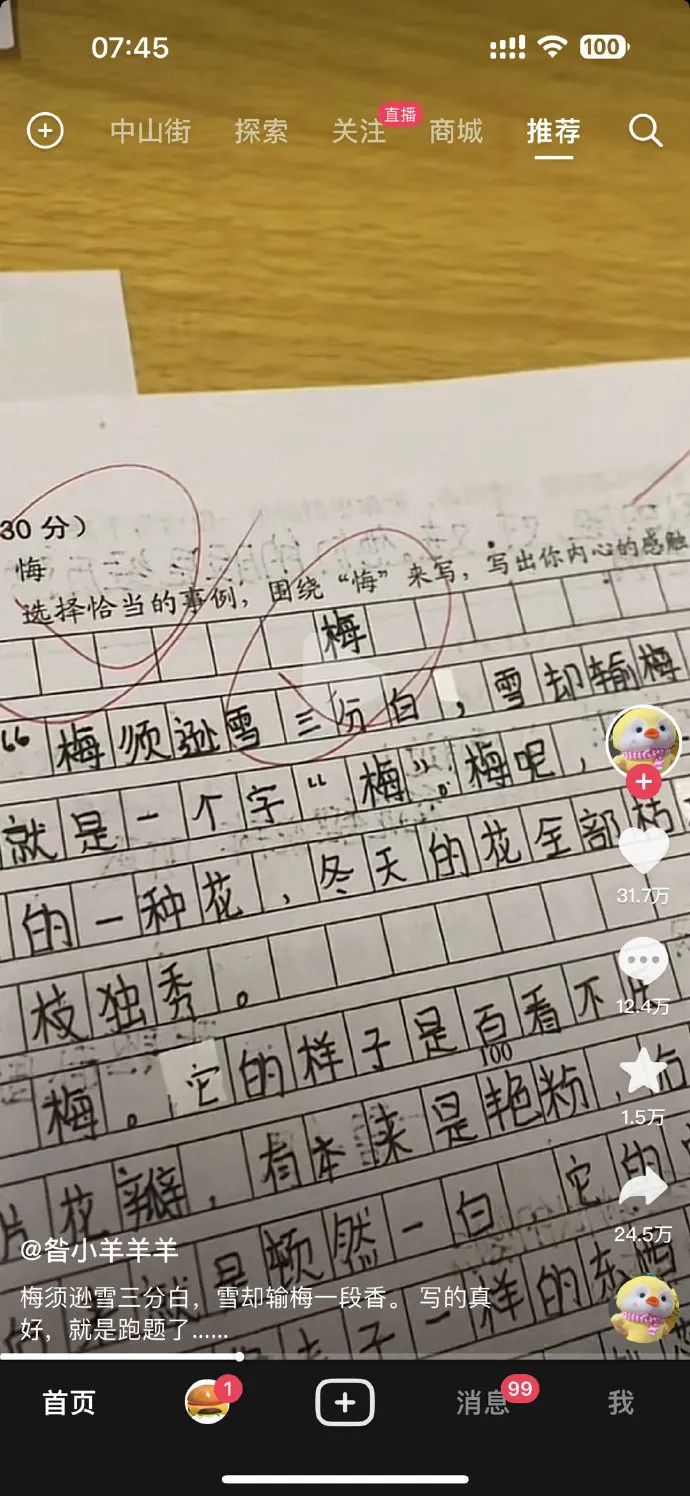 07:45
100
中山街 探索 关注 直播 商城 推荐
30分）
悔
选择恰当的事例，围绕“悔”来写，写出你内心的感触
梅
“梅须逊雪三分白，雪却输梅
就是一个字“梅”。梅呢，
的一种花，冬天的花全部枯
枝独秀。
梅。它的样子是百看不
100
片花瓣，有本来是艳粉，
是顿然一白，它的
子一样的东西
31.7万
12.4万
1.5万
24.5万
@昝小羊羊羊
梅须逊雪三分白，雪却输梅一段香。 写的真
好，就是跑题了……
首页 1 消息 99 我